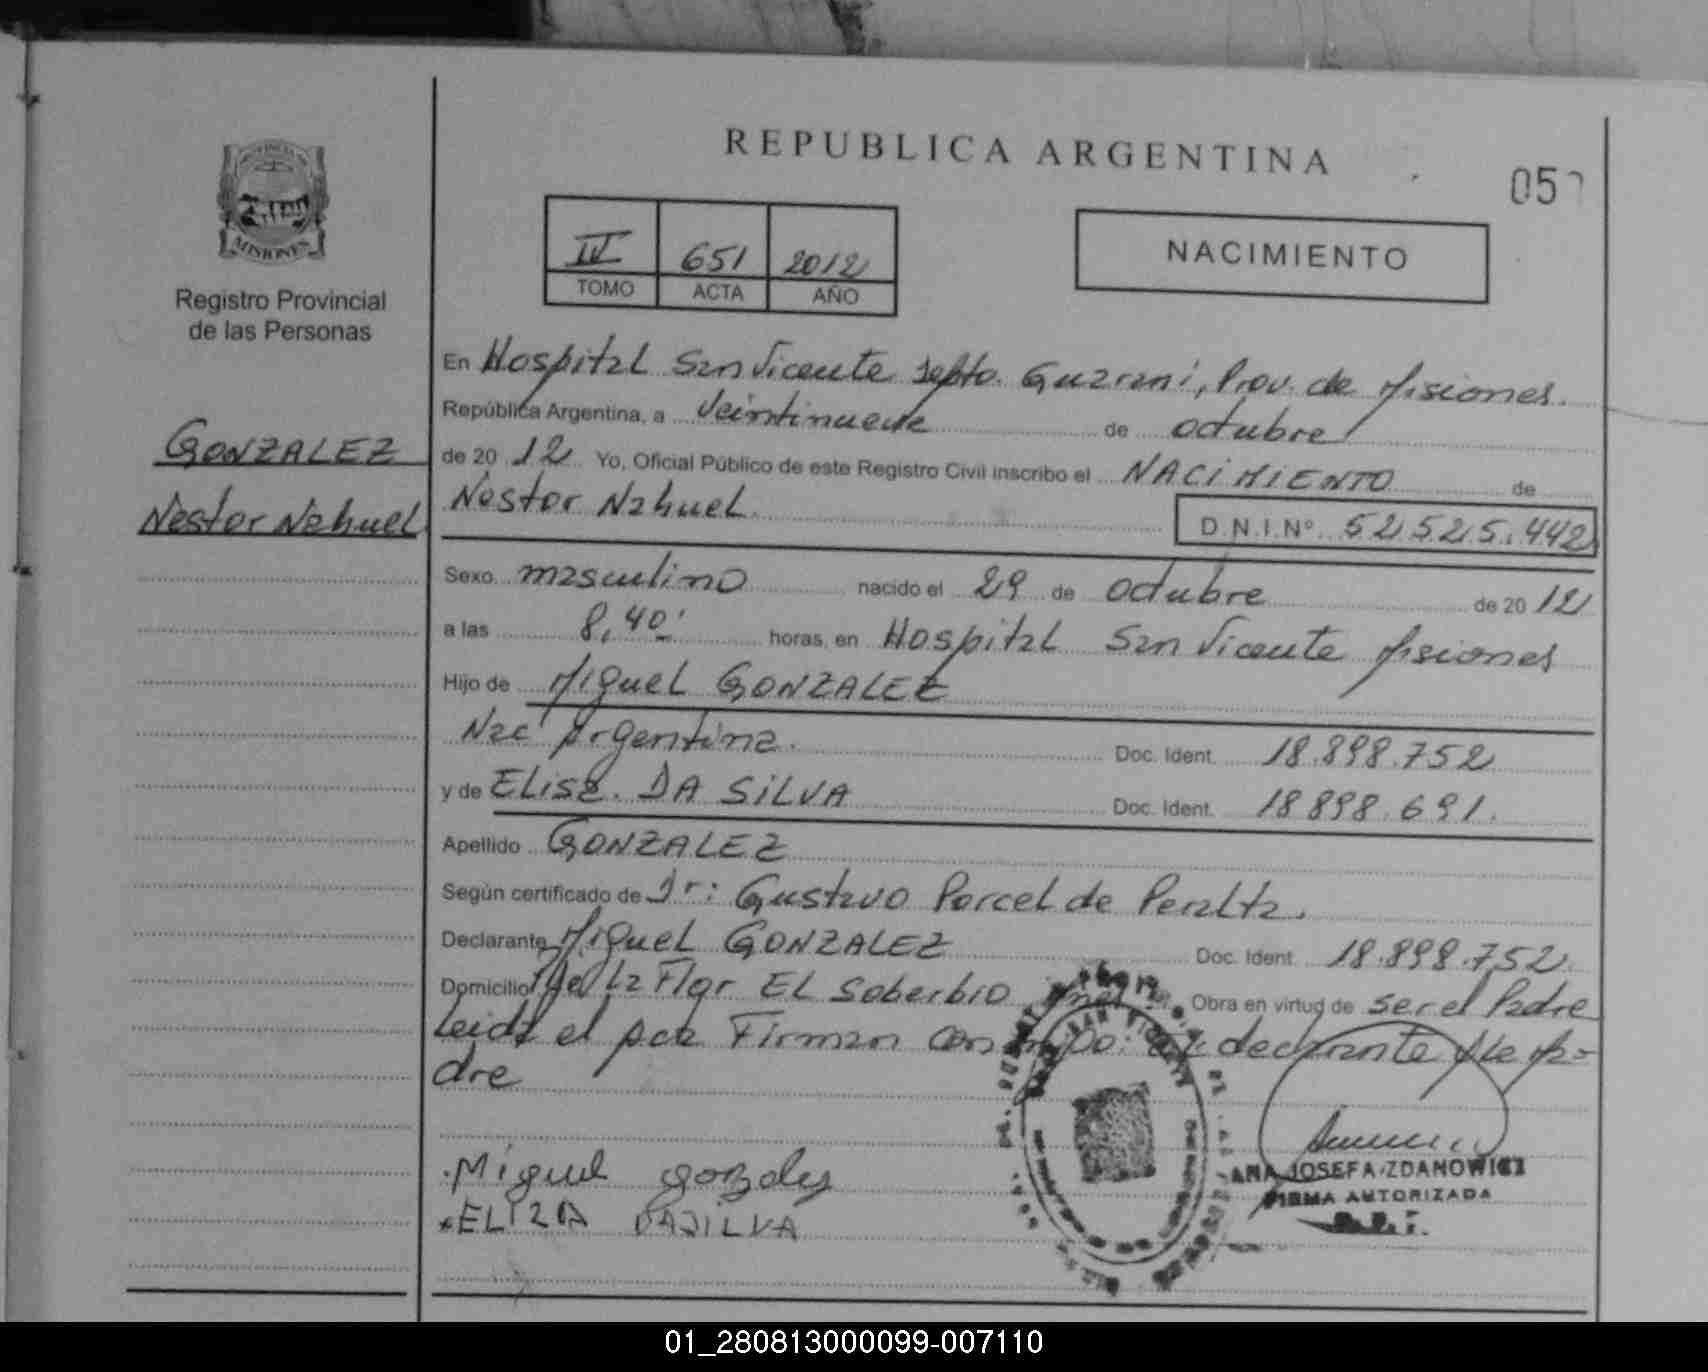 REPUBLICA ARGENTINA
05
PROVINCIA DE
MISIONES
Registro Provincial
de las Personas
IV 651 2012
TOMO ACTA AÑO
NACIMIENTO
GONZALEZ
Nestor Nahuel
En Hospital San Vicente Depto. Guarani, Prov. de Misiones.
República Argentina, a Veintinueve de octubre
de 20 12 Yo, Oficial Público de este Registro Civil inscribo el NACIMIENTO de
Nestor Nahuel. D.N.I.Nº 52.525.442
Sexo masculino nacido el 29 de octubre de 20 12
a las 8,40' horas, en Hospital San Vicente Misiones
Hijo de Miguel GONZALEZ
Nac Argentina. Doc. Ident. 18.898.752
y de Elisa. DA SILVA Doc. Ident. 18898.691.
Apellido GONZALEZ
Según certificado de Dr: Gustavo Porcel de Peralta.
Declarante Miguel GONZALEZ Doc. Ident. 18.898.752
Domicilio La Flor El Soberbio Obra en virtud de ser el Padre
Leida el Firman declarante y la ma-
dre
Miguel gonzales
ELIZA DASILVA
ANA JOSEFA ZDANOWICZ
FIRMA AUTORIZADA
01_280813000099-007110